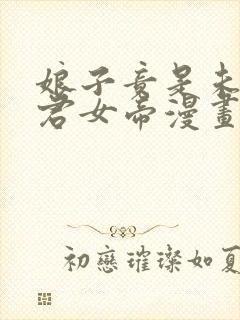 娘子竟是未
君女帝漫畫
初戀璀璨如夏